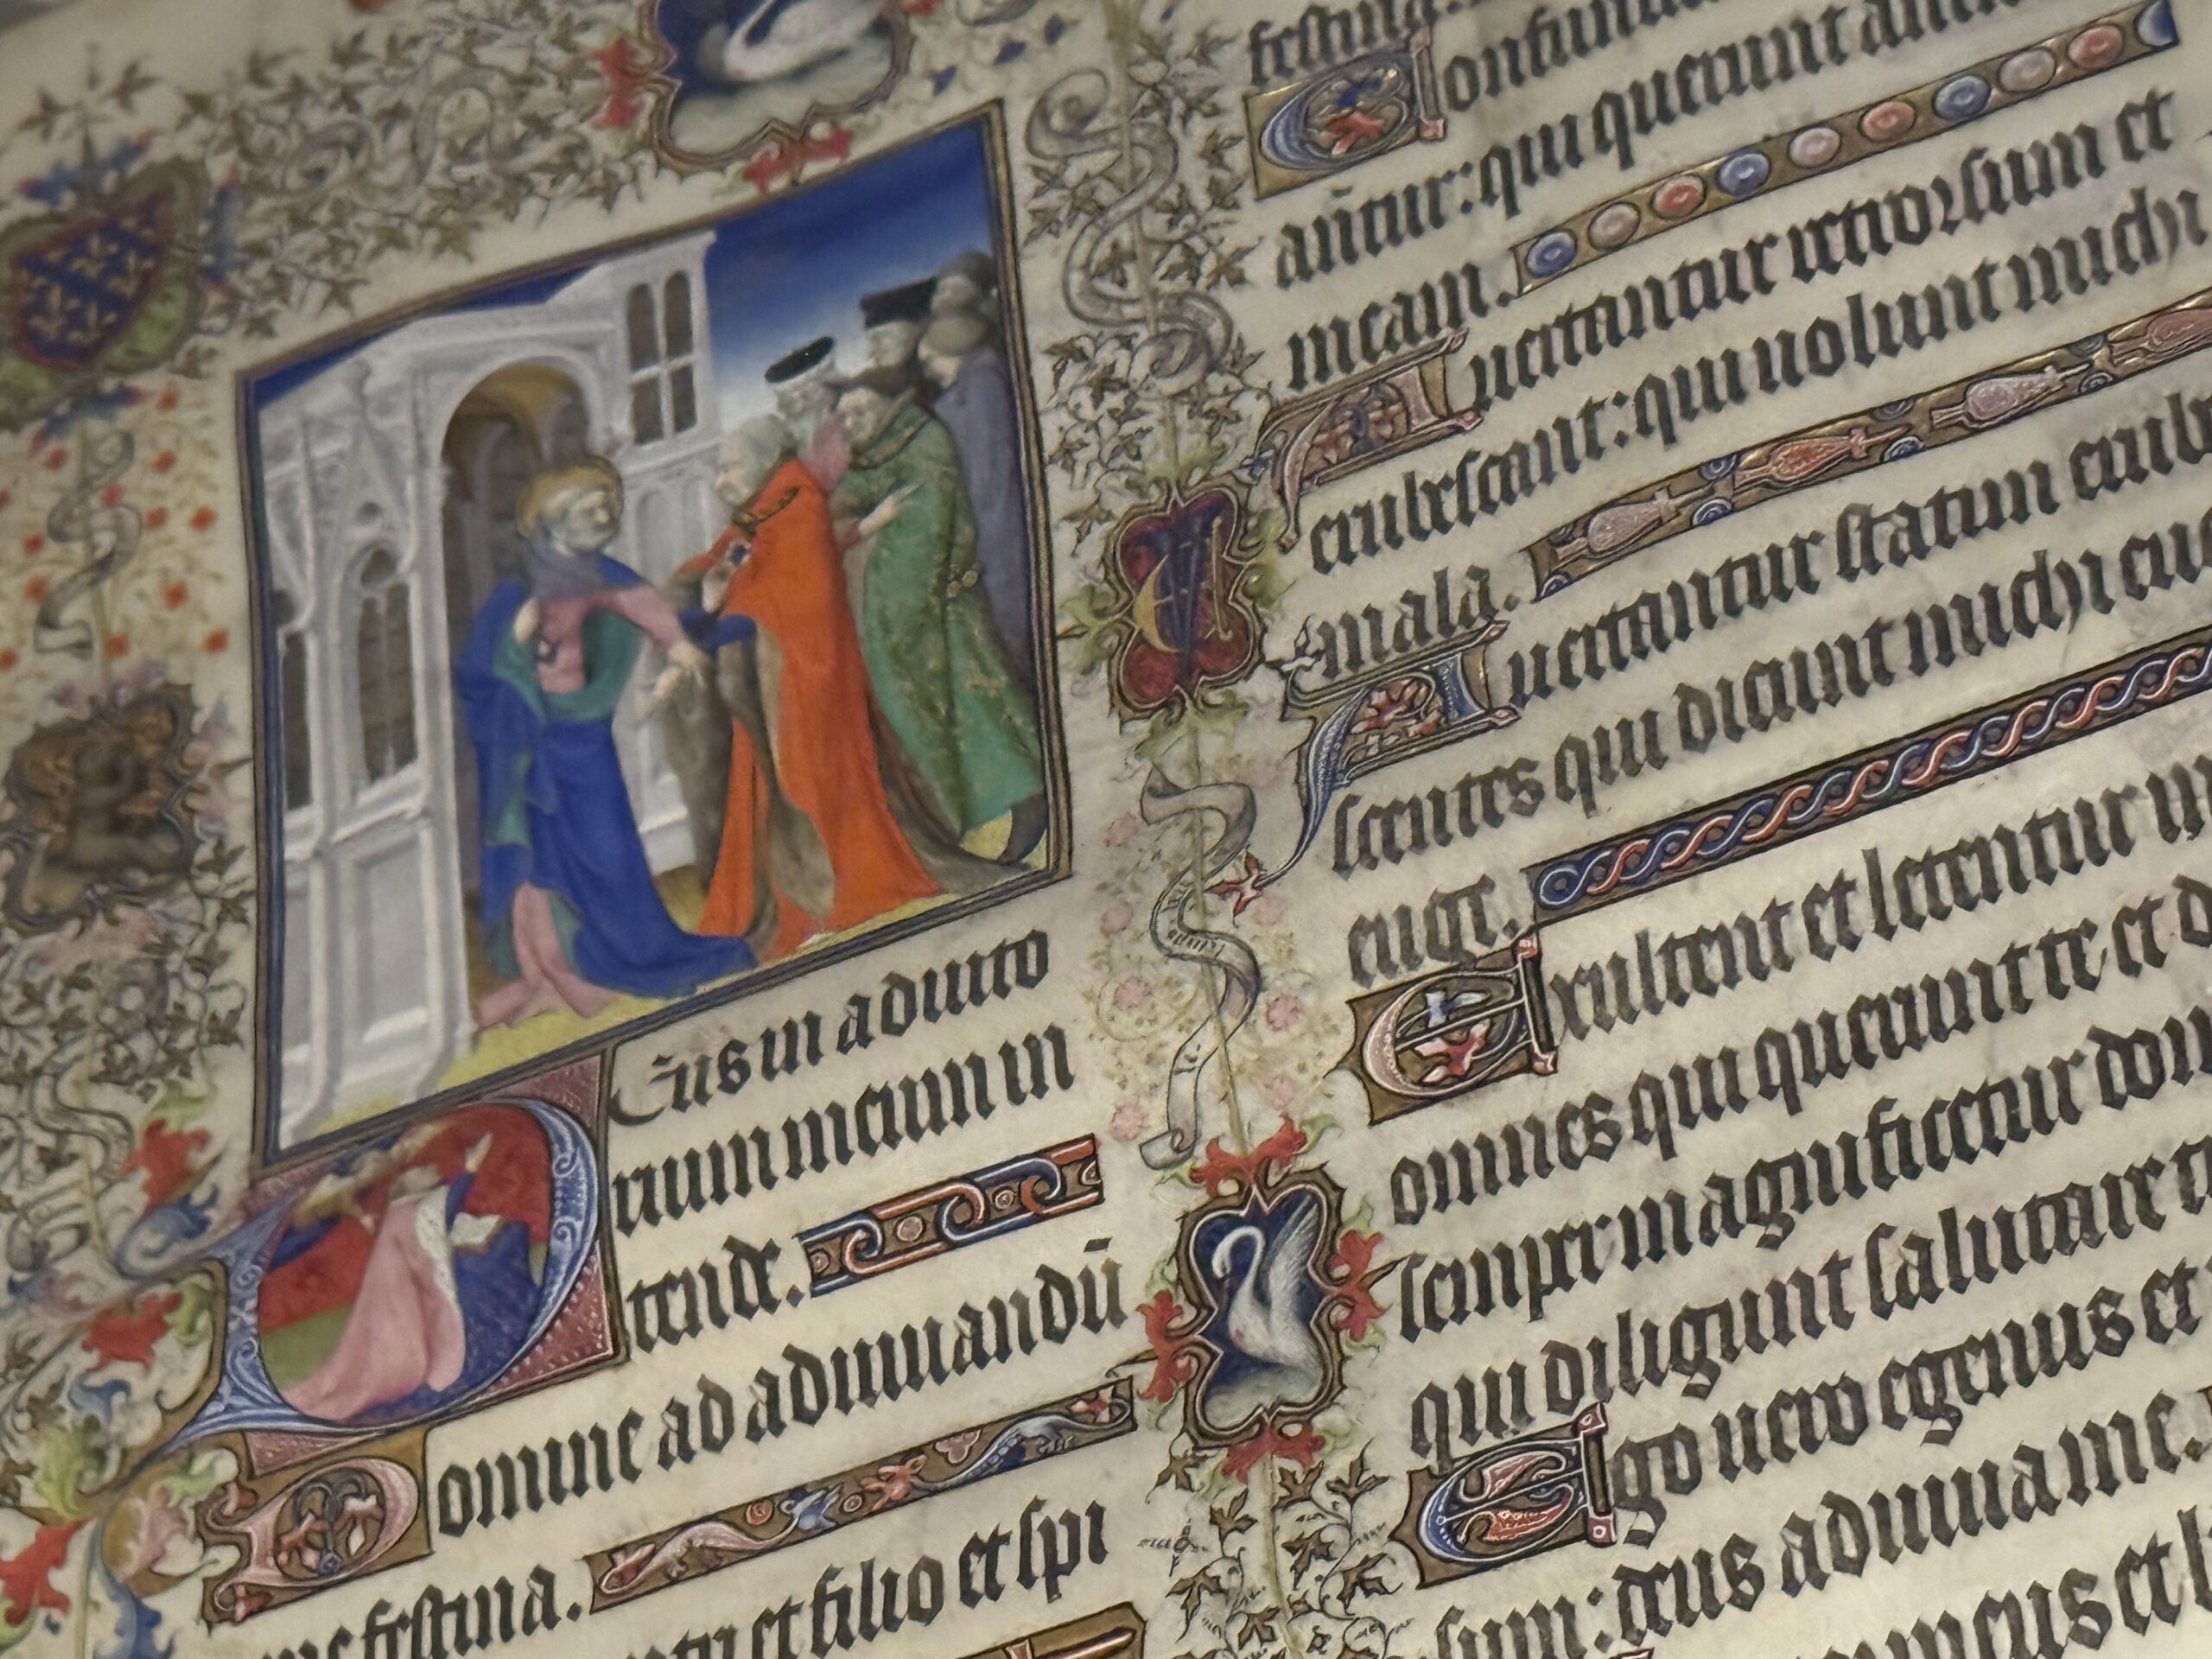 Deus in adiuto
rium meum in
tende.
Domine ad adiuuandū
me festina.
et filio et spi
festina.
añtur: qui querunt
meam.
Auertantur retrorsum et
erubescant: qui uolunt michi
mala.
Auertantur statim erube
scentes qui dicunt michi eug
euge.
Exultent et letentur in
omnes qui querunt te et
semper magnificetur
qui diligunt salutare
Ego uero egenus et
sum: deus adiuua me.
meus et